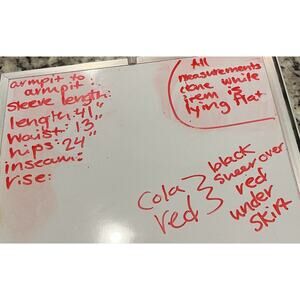 armpit to
armpit:
sleeve length:
length: 41"
waist: 13"
hips: 24"
inseam:
rise:
All
measurements
done while
item is
lying flat
cola
red
black
sheer over
red
under
skirt